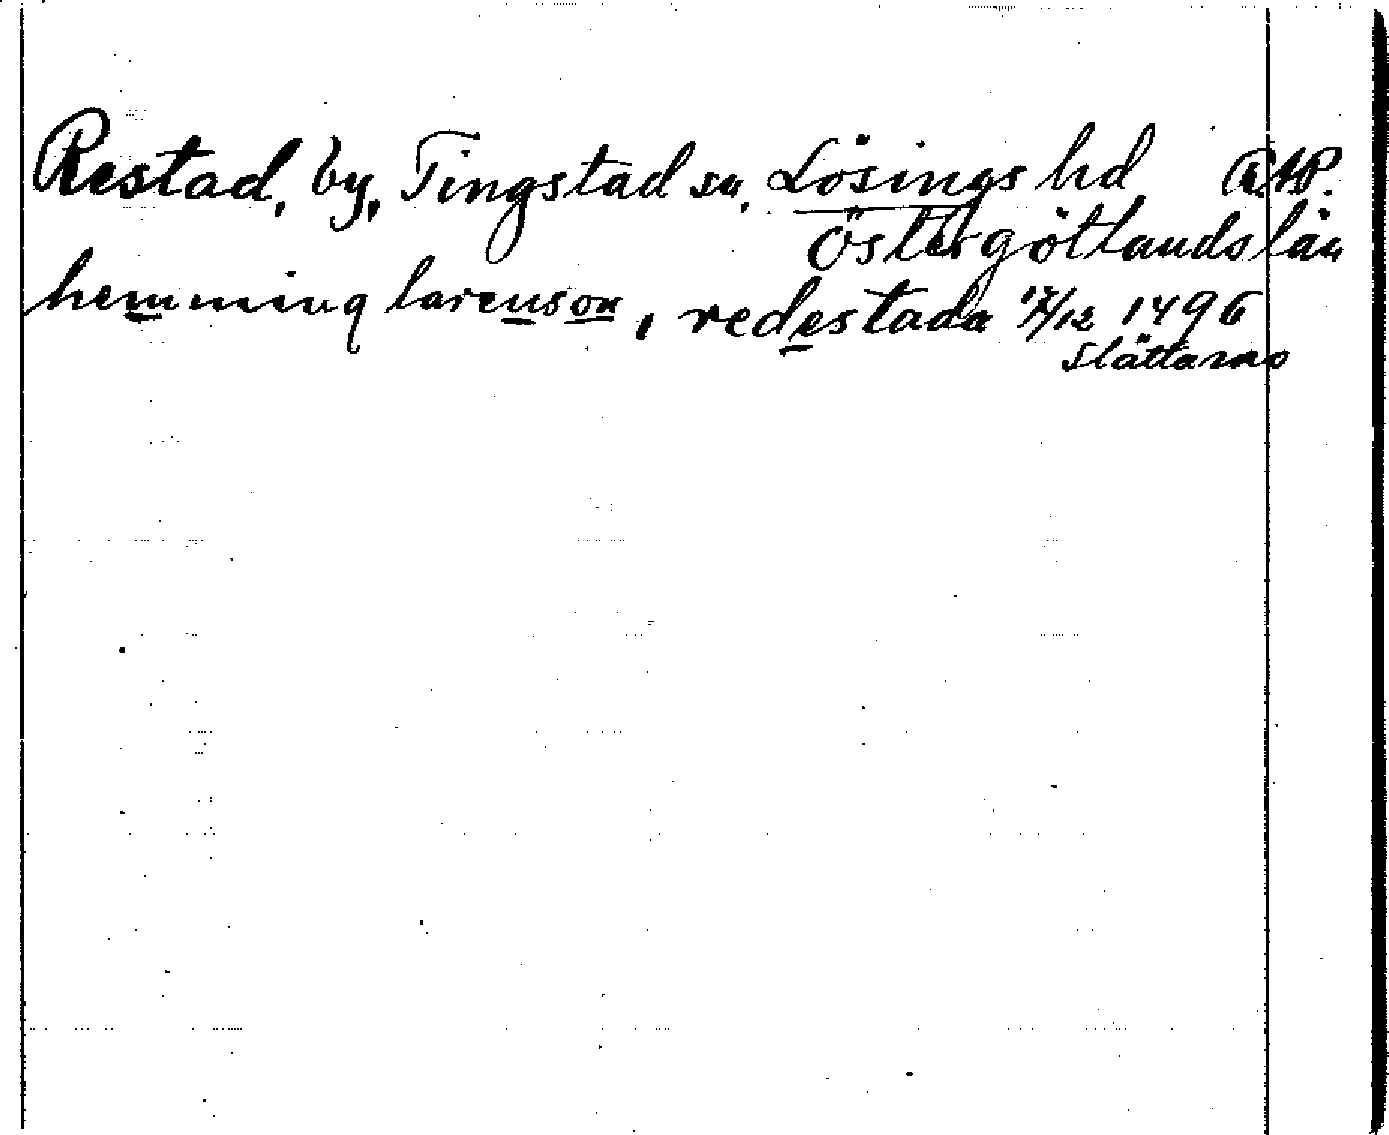 Restad, by, Tingstad sn, Lösings hd
Östergötlands län
hemming larenson, redestada /12 1496
Slättarmo